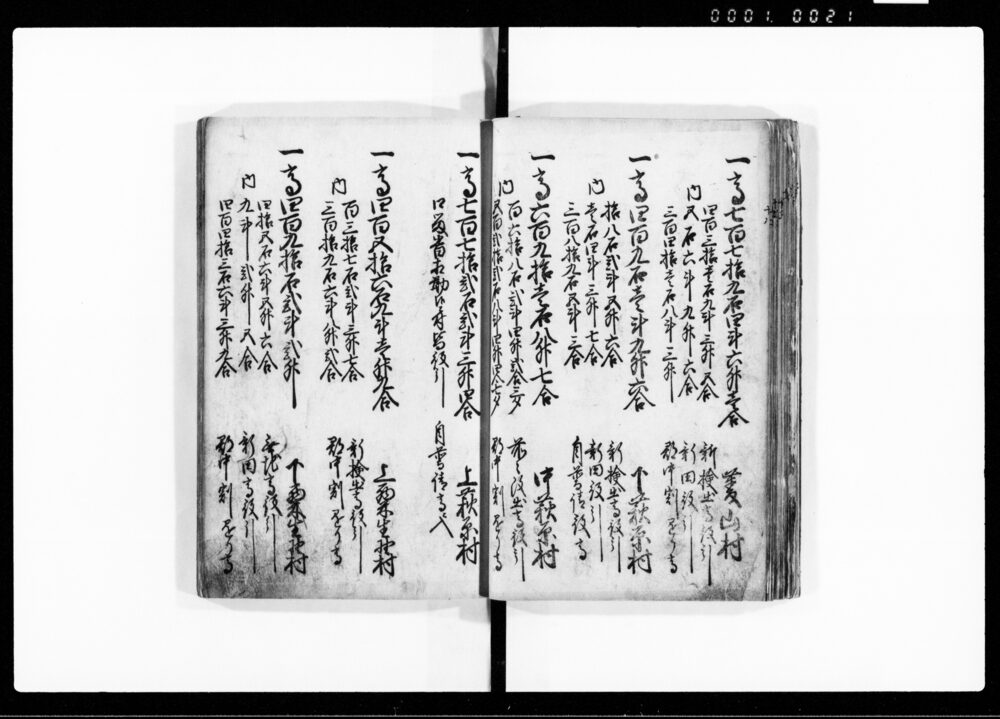 0001 0021
一高七百七拾九石四斗六升壱合 菱山村
四百三拾壱石九斗三升弐合 新検出高役引
内 五石六斗九升六合 新田役引
三百四石八斗三升 郡中割懸り高
一高四百九石壱斗九升六合 下萩原村
拾八石弐斗五升六合 新検出高役引
内 壱石四斗三升七合 新田役引
三百八拾九石五斗三合 自普請役高
一高六百九拾壱石八升七合 中萩原村
百六拾八石弐斗四升弐合三夕 前々改出高役引
内 五百弐拾弐石八斗四升四合七夕 郡中割懸り高
一高七百七拾弐石弐斗三升四合 上萩原村
口留番所相勤候付皆役引 自普請高ニ入
一高四百五拾六石九斗壱升九合 上粟生野村
百三拾七石弐斗三升七合 新検出高役引
内 三百拾九石六斗八升弐合 郡中割懸り高
一高四百九拾石弐斗弐升 下粟生野村
四拾五石六斗五升六合 無地高役引
内 九斗弐升五合 新田高役引
四百四拾三石六斗三升九合 郡中割懸り高